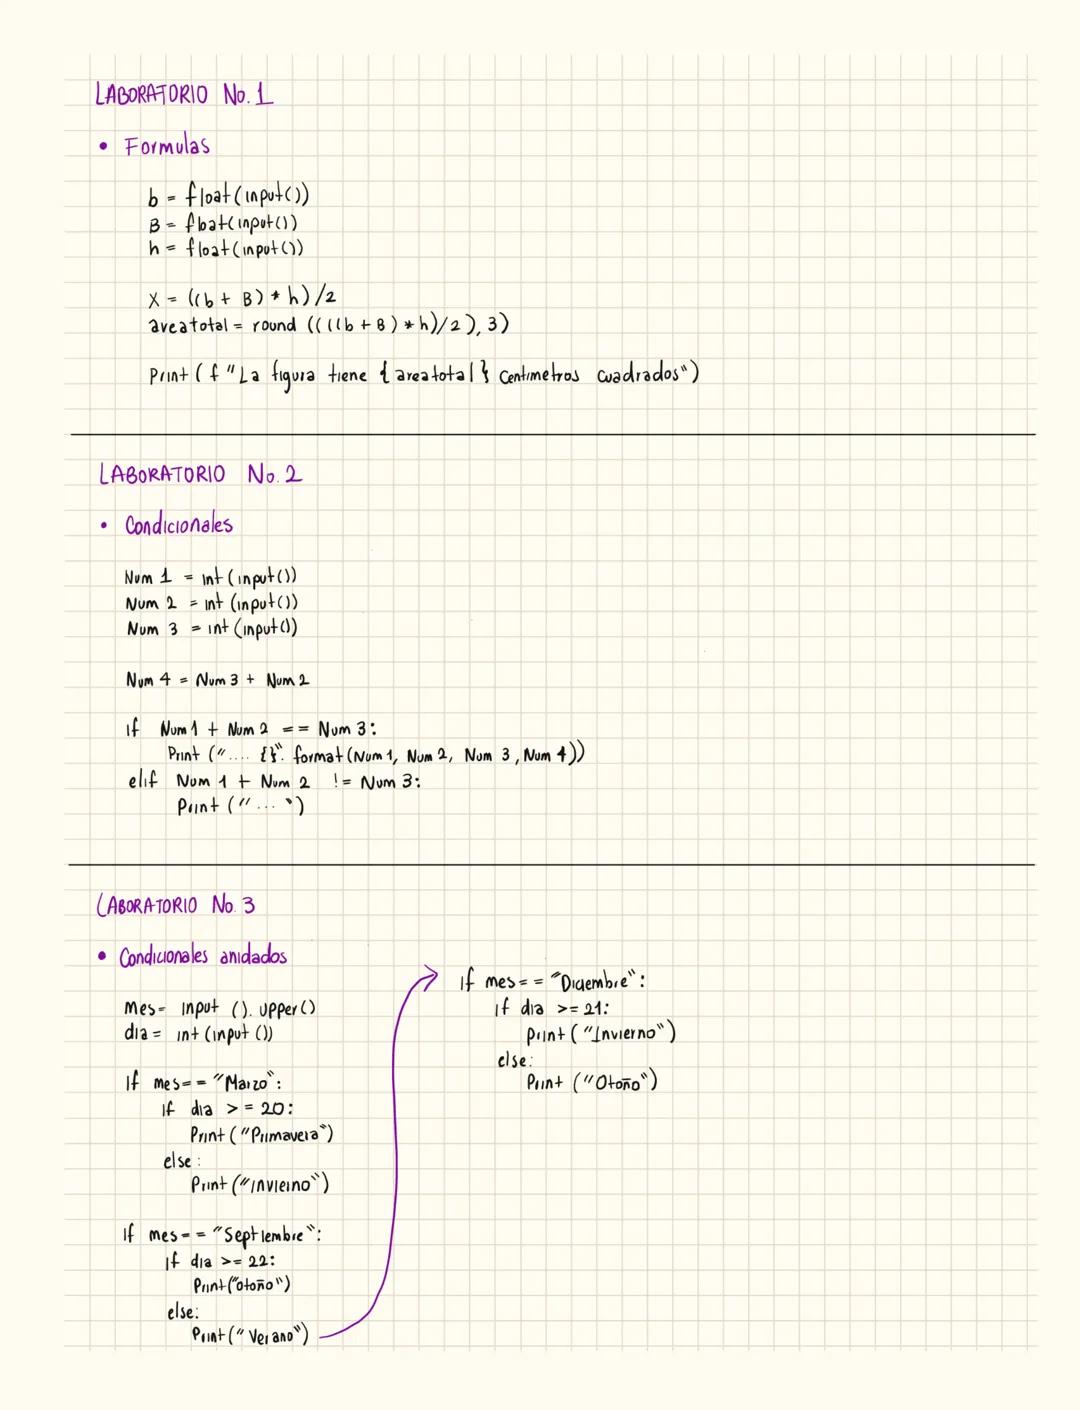 LABORATORIO No. 1
• Formulas
b = float(input())
B = float(input())
h = float(input())
X = ((b + B) * h)/2
areatotal = round ((((b + B) * h)/2), 3)
Print (f "La figura tiene {areatotal} centimetros cuadrados")
LABORATORIO No. 2
• Condicionales
Num 1 = int (input())
Num 2 = int (input())
Num 3 = int (input())
Num 4 = Num 3 + Num 2
if Num 1 + Num 2 == Num 3:
Print (".... {}". format (Num 1, Num 2, Num 3, Num 4))
elif Num 1 + Num 2 != Num 3:
Print ("... ")
LABORATORIO No. 3
• Condicionales anidados
Mes= input (). upper()
dia = int (input ())
If mes== "Marzo":
If dia >= 20:
Print ("Primavera")
else:
Print ("Invierno")
If mes== "Septiembre":
If dia >= 22:
Print("otoño")
else:
Print (" Verano")
If mes== "Diciembre":
if dia >= 21:
print ("Invierno")
else:
Print ("Otoño")